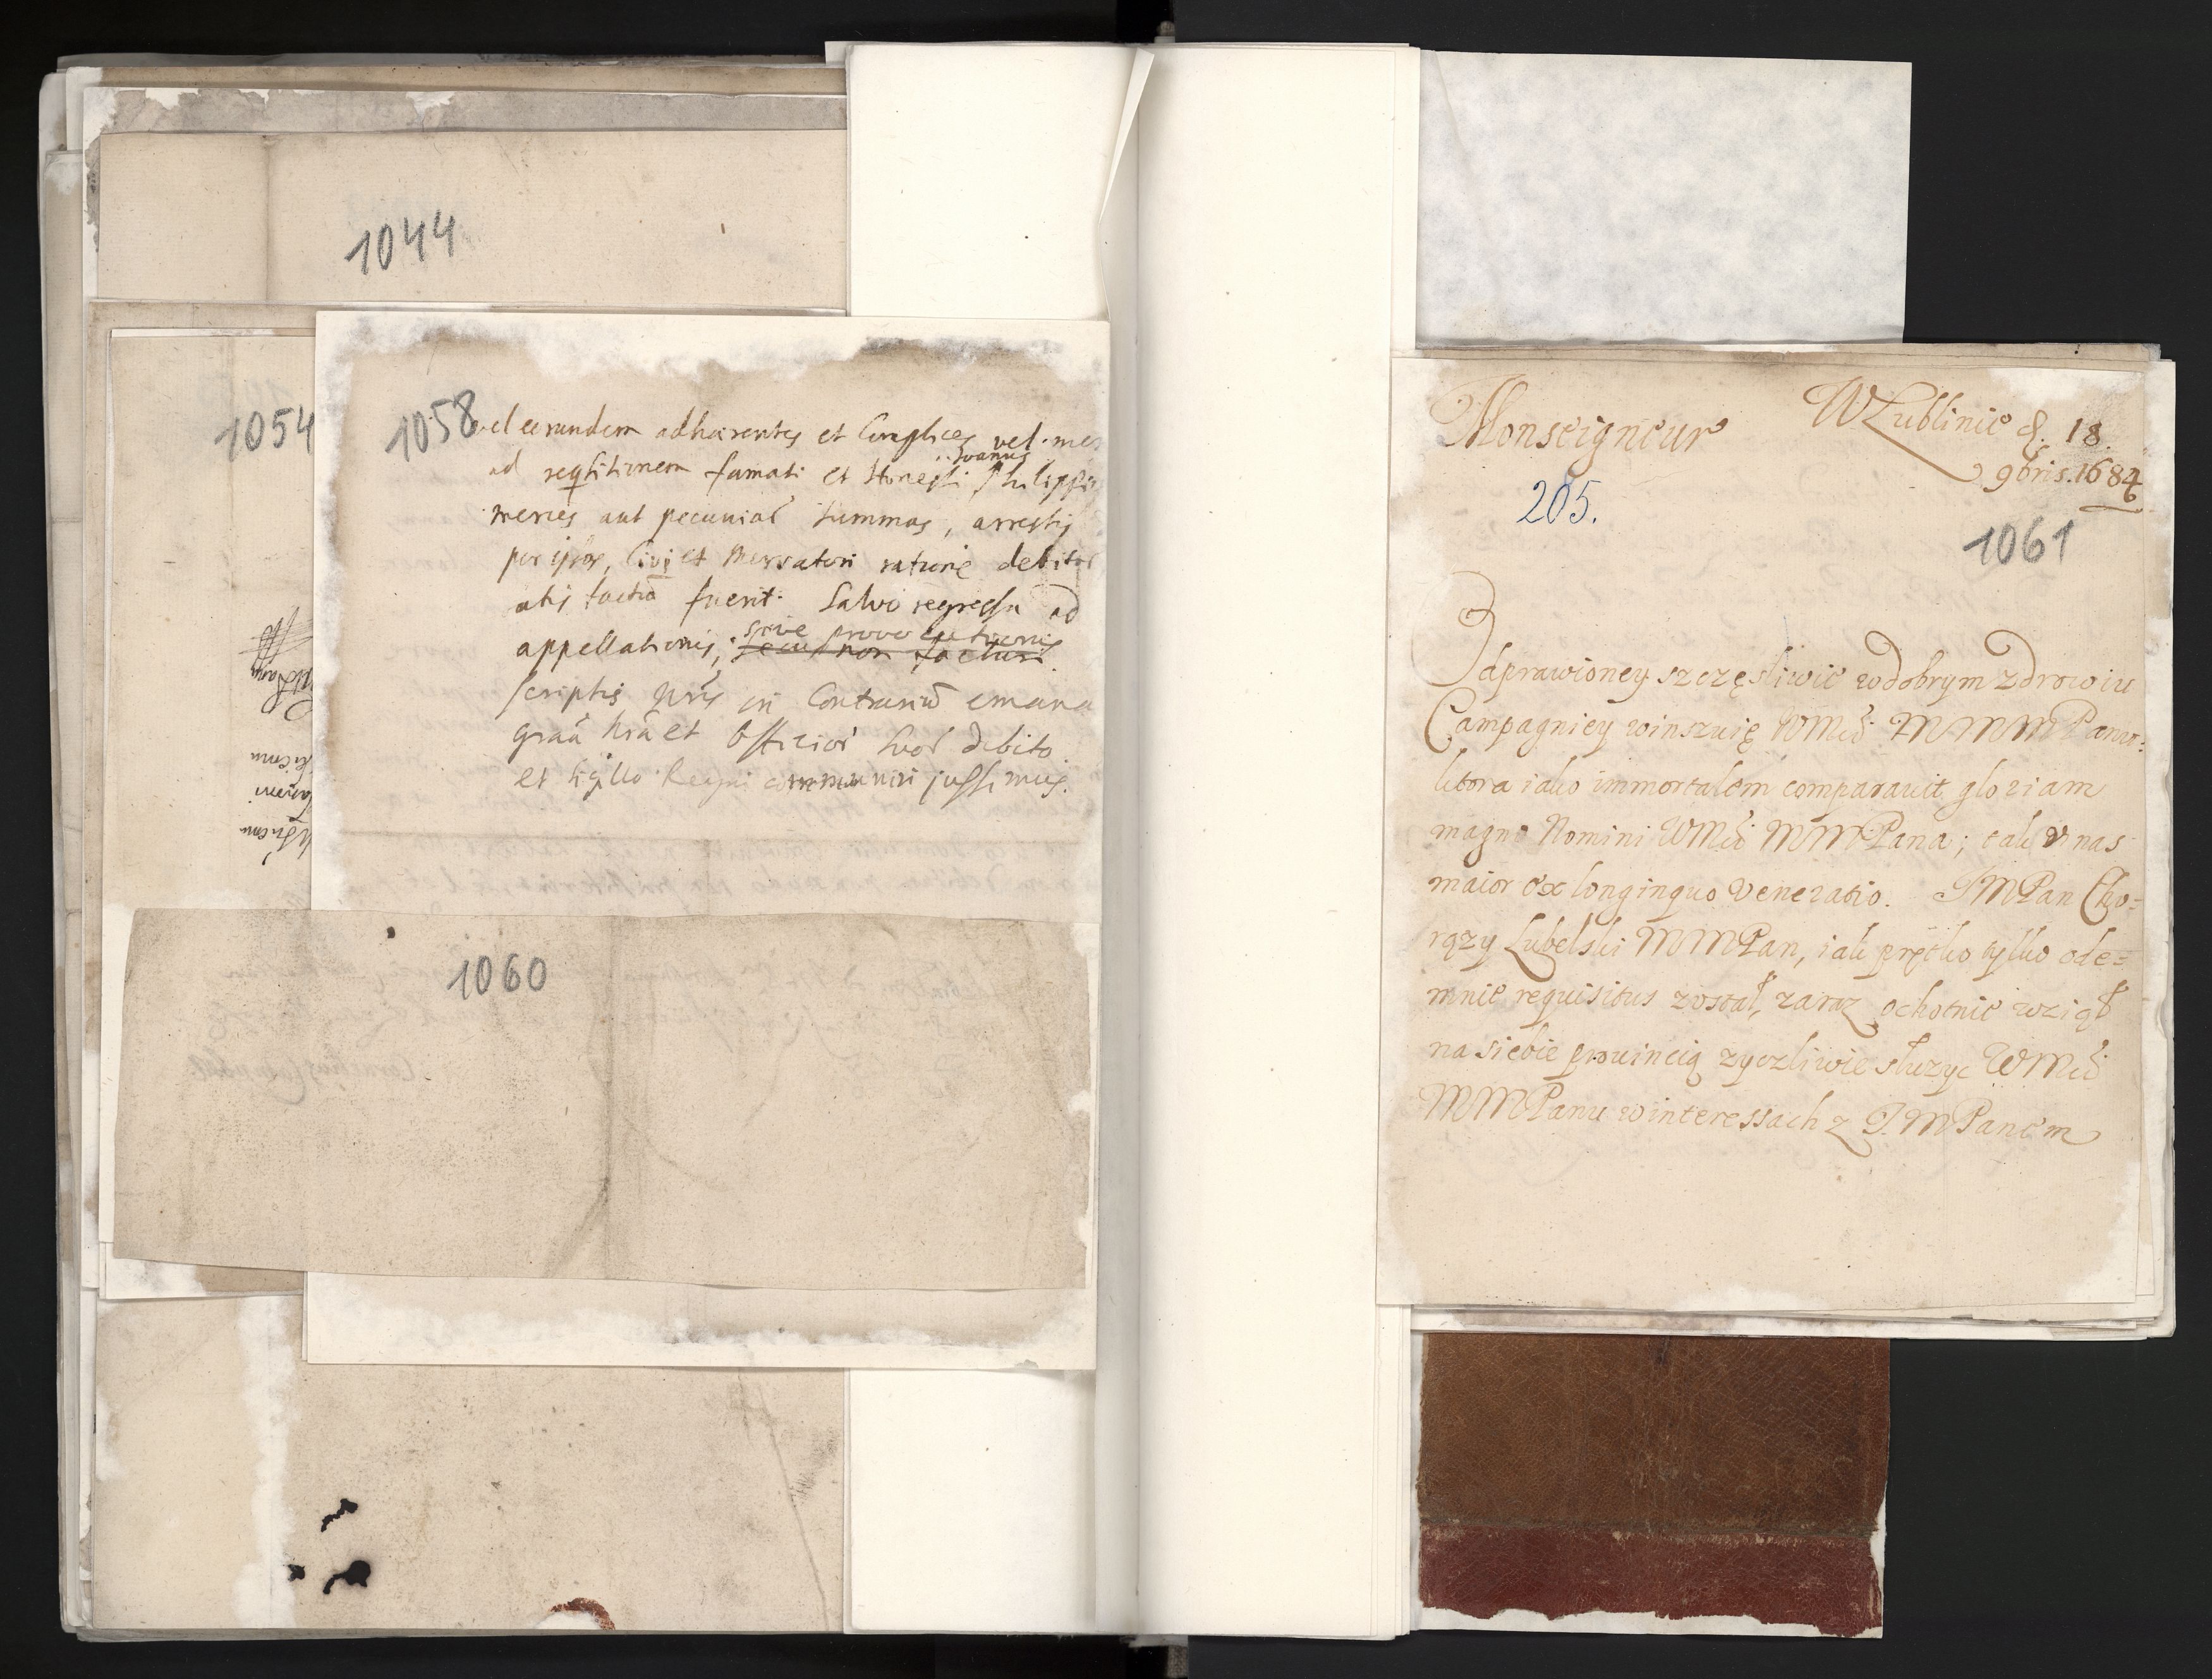 1044
1054
1058
vel eorundem adhaerentes et Complices vel mer
ad reqsitionem famati et Honesti Joannis Philippi
merces aut pecuniar summas, arrestis
per ipsos, Civi et Mercatori ratione debitor
atis factu fuerit. Salvo regressu ad
appellationis, sive provocationis
secus non facturi.
scriptis nris in Contrariu emana
graa nra et Officior suor debito
et sigillo Regni communiri jussimus.
1060
Monseigneur
W Lublinie d. 18.
9bris. 1684
205.
1061
Odprawioney szczęsliwie w dobrym zdrowiu
Campagniey winszuię WMci MMMPanu:
litora iako immortalem comparauit gloriam
magno Nomini WMci MMPana; tak v nas
maior ex longinquo veneratio. JMPan Cho=
rązy Lubelski MMPan, iak prętko tylko ode=
mnie requisitus został, zaraz ochotnie wziął
na siebie prouincią zyczliwie słuzyc WMci
MMPanu w interessach z J.MPanem